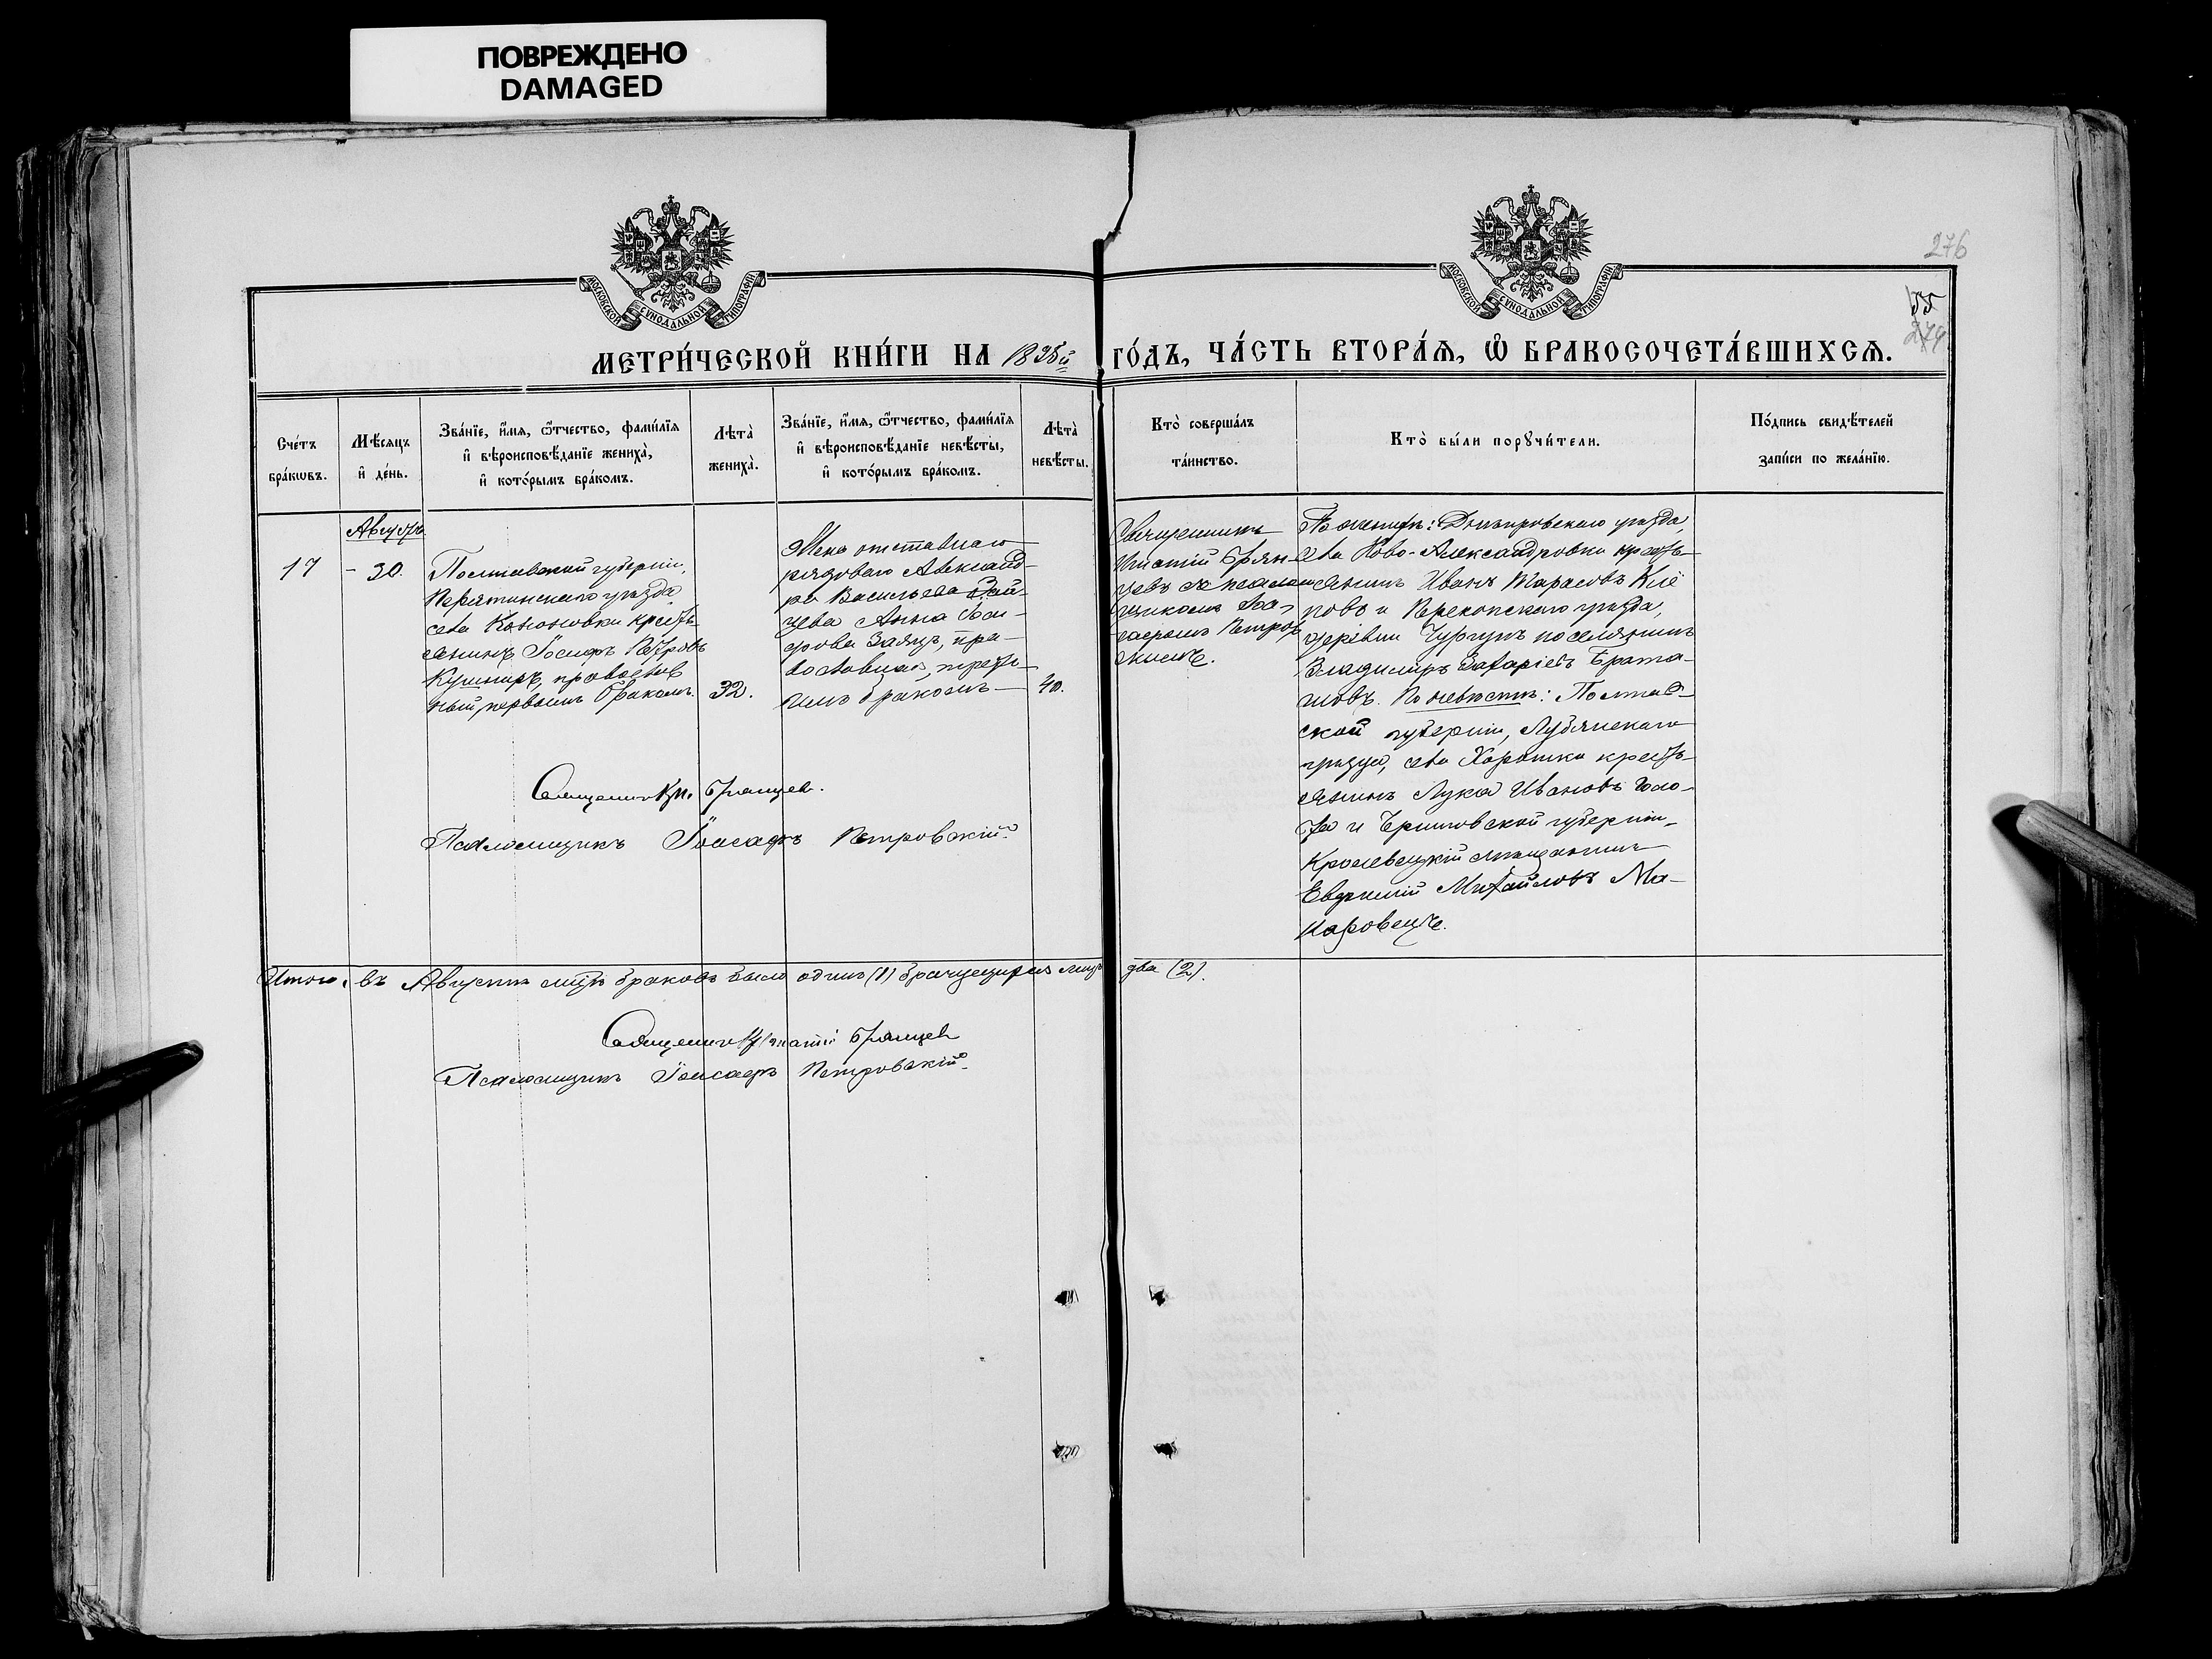 ПОВРЕЖДЕНО
DAMAGED
276
МОСКОВСКОЙ СѴНОДАЛЬНОЙ ТИПОГРАФІИ
МОСКОВСКОЙ СѴНОДАЛЬНОЙ ТИПОГРАФІИ
55
274
МЕТРИ́ЧЕСКОЙ КНИ́ГИ НА 1895й ГО́ДЪ, ЧА́СТЬ ВТОРА́Ѧ, Ѽ БРАКОСОЧЕТА́ВШИХСѦ.
Сче́тъ
бра́кѡвъ.
Мѣ́сѧцъ
и҆ де́нь.
Зва́нїе, и҆́мѧ, ѻ҆́тчество, фами́лїѧ
и҆ вѣроисповѣ́данїе жениха̀,
и҆ кото́рымъ бра́комъ.
Лѣта̀
жениха̀.
Зва́нїе, и҆́мѧ, ѻ҆́тчество, фами́лїѧ
и҆ вѣроисповѣ́данїе невѣ́сты,
и҆ кото́рымъ бра́комъ.
Лѣта̀
невѣ́сты.
Кто̀ соверша́лъ
та́инство.
Кто̀ бы́ли порꙋчи́тели.
По́дпись свидѣ́телей
за́писи по жела́нїю.
17
Августъ
- 30.
Полтавской губерніи,
Пирятинскаго уѣзда
села Кононовки кресть-
янинъ Іосифъ Петровъ
Кушниръ, православ
ный, первымъ бракомъ.
32.
Жена отставнаго
рядоваго Александ-
ра Васильева Зай-
цева Анна
Заяцъ, пра-
вославная, треть-
имъ бракомъ
40.
Священникъ
Игнатій Брян-
цевъ съ псалом
щикомъ Іоа-
сафомъ Петров
скимъ.
По женихѣ: Днѣпровскаго уѣзда,
села Ново-Александровки кресть-
янинъ Иванъ Тарасовъ
и Перекопскаго уѣзда,
деревни Чургунъ поселянинъ
Владиміръ Захаріевъ Брата-
новъ. По невѣстѣ: Полтав-
ской губерніи, Лубянскаго
уѣзда, села Хорошки кресть-
янинъ Лука Ивановъ
и Черниговской губерніи
Кролевецкій мѣщанинъ
Евфимій Михайловъ Ма-
каровецъ.
Священникъ И. Брянцев.
Псаломщикъ Іоасафъ Петровскій
Итого: въ Августѣ мцѣ браковъ было одинъ (1) брачущихся лицъ два (2).
Священникъ Игнатій Брянцев
Псаломщикъ Іоасафъ Петровскій